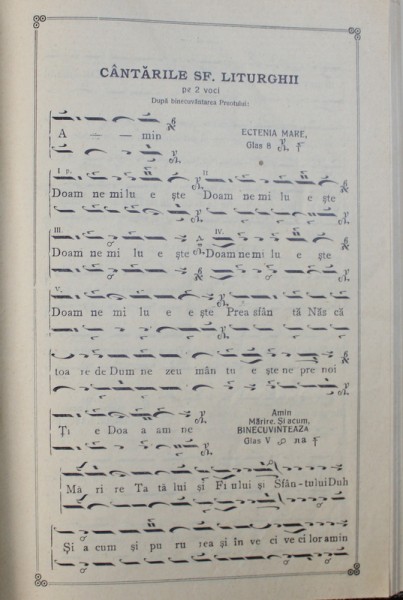 CÂNTĂRILE SF. LITURGHII
pe 2 voci
După binecuvântarea Preotului:
A — — min
ECTENIA MARE,
Glas 8
I. II
Doam ne mi lu e ște Doam ne mi lu e ște
III. IV.
Doam ne mi lu e ște Doam ne mi lu e ște
V.
Doam ne mi lu e e ște Prea sfân tă Năs că
toa re de Dum ne zeu mân tu e ște ne pre noi
Ți e Doa a am ne
Amin
Mărire. Și acum,
BINECUVINTEAZA
Glas V na
Ma ri re Ta tă lui și Fi ului și Sfân-tului Duh
Și a cum și pu ru rea și în ve ci ve ci lor amin